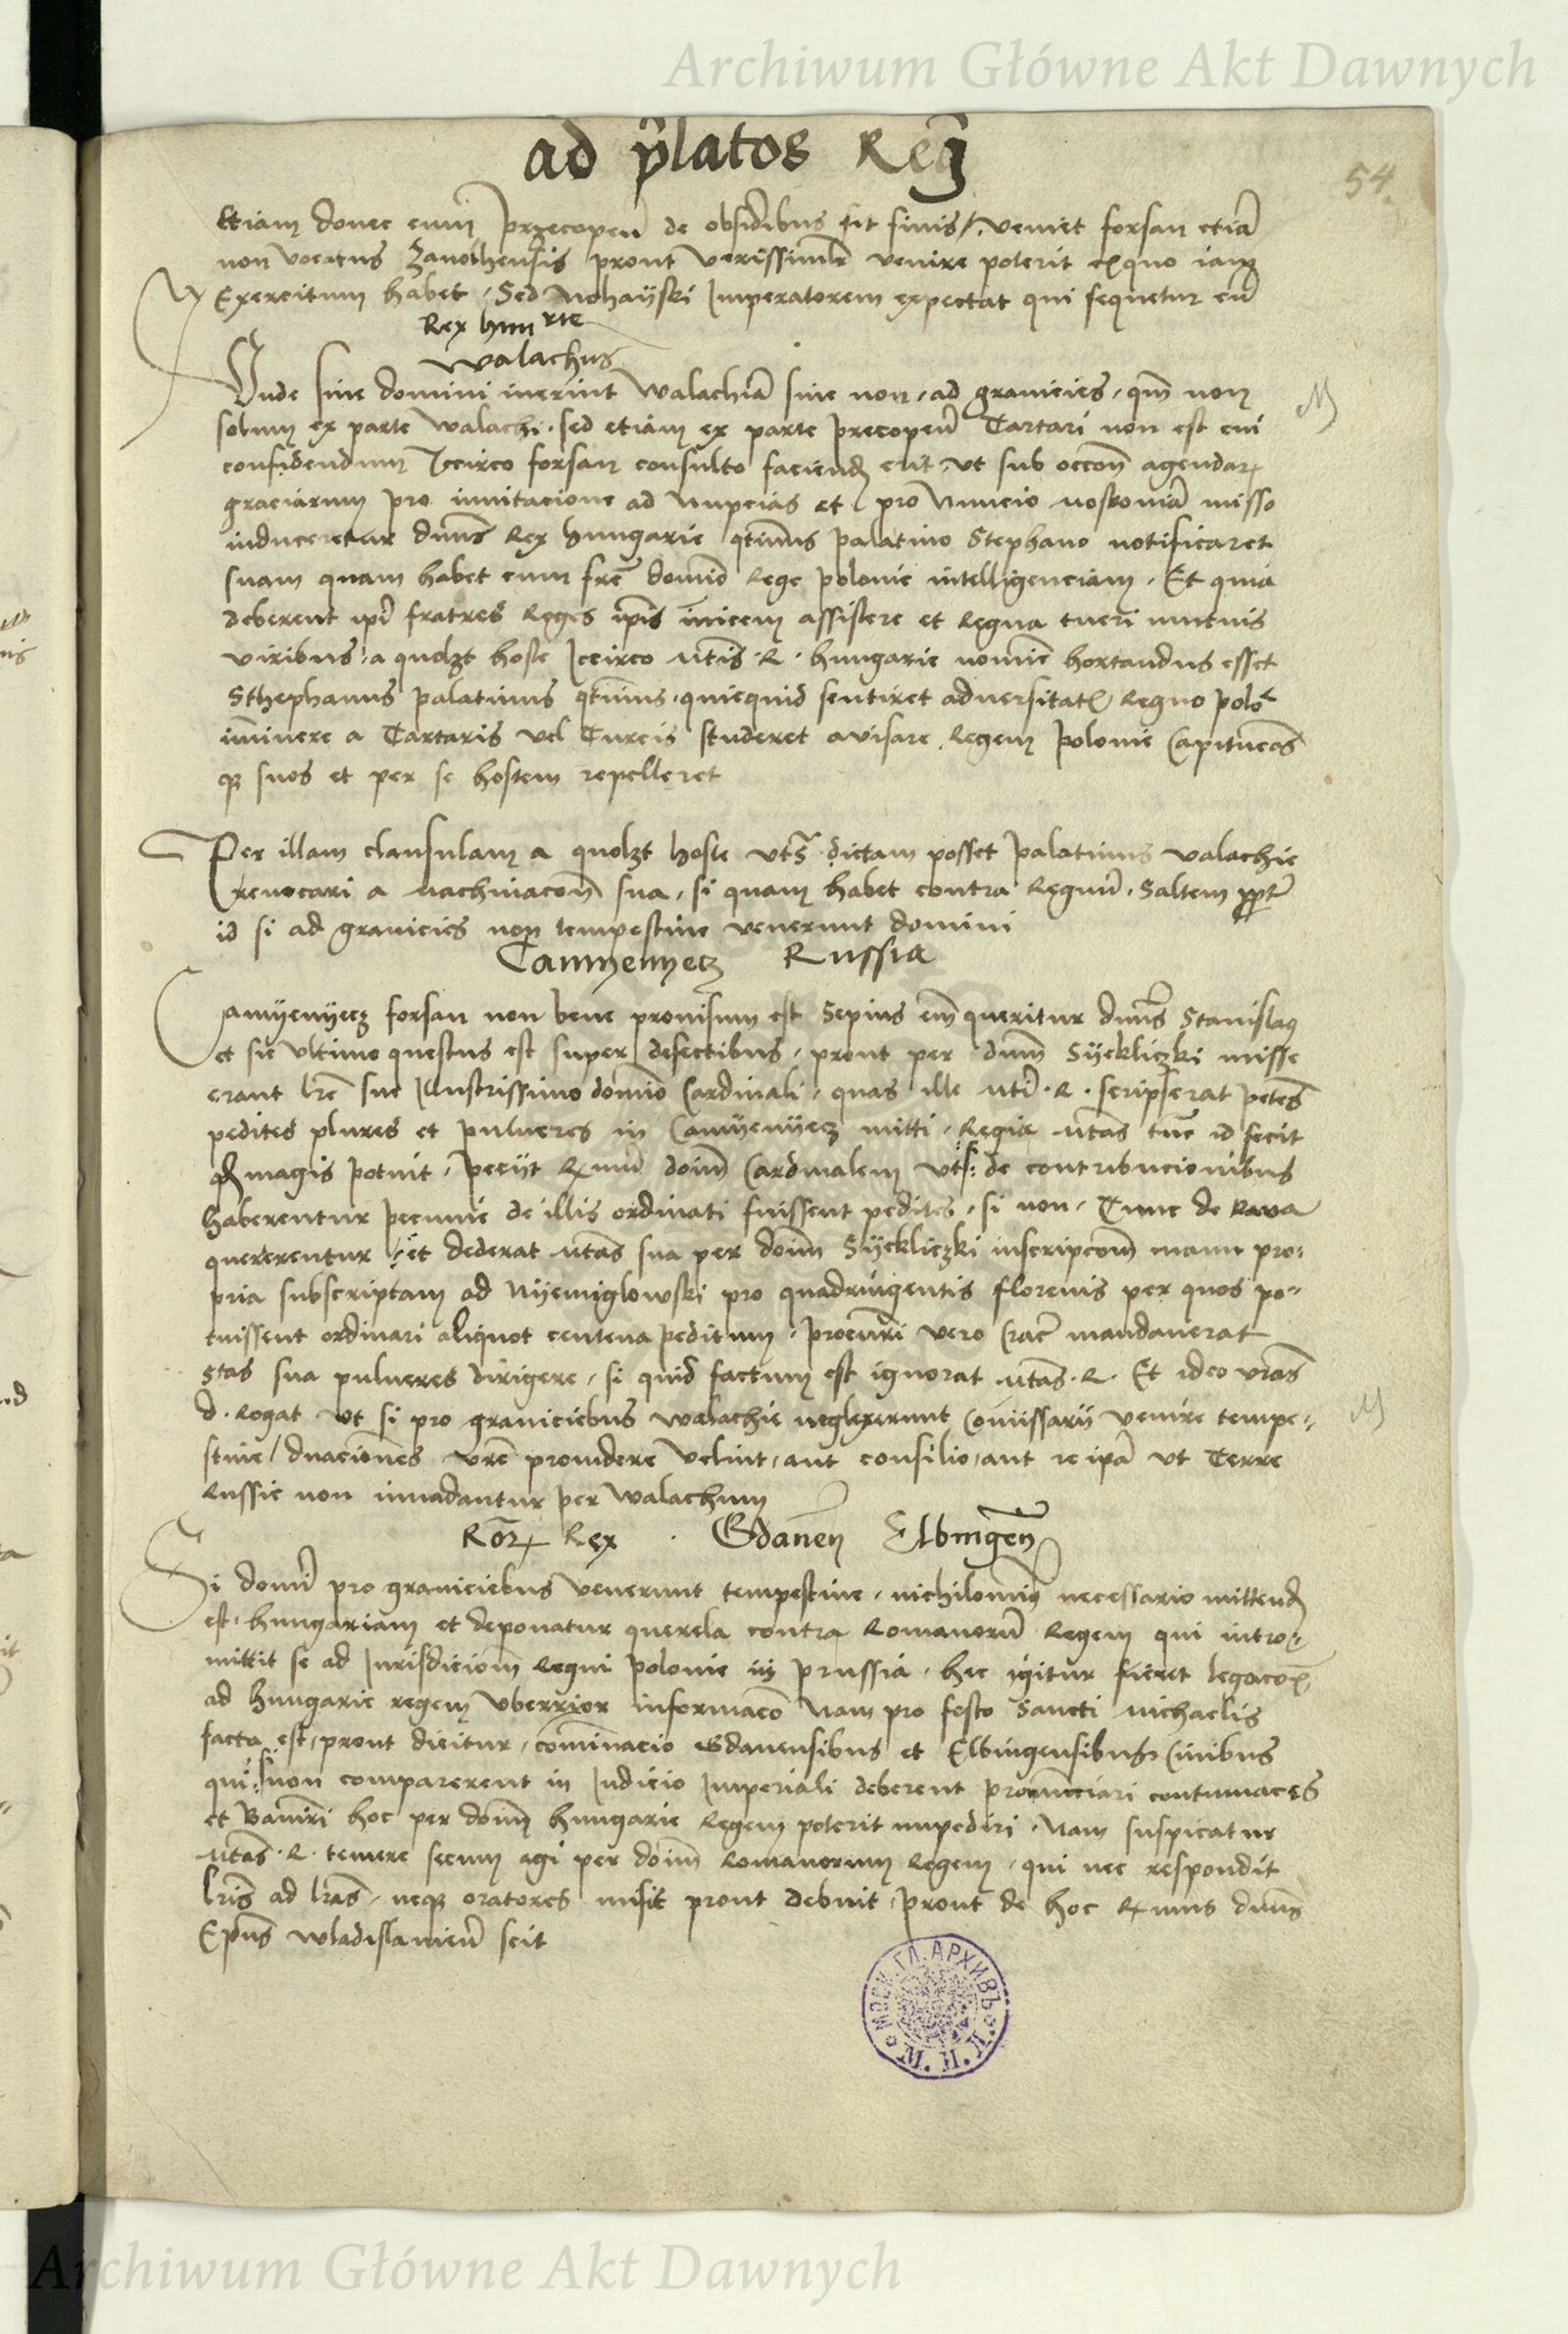 Archiwum Główne Akt Dawnych
ad p̃latos Regj
54
Etiam donec cum precopen̄ de obsidibus sit finis / veniet forsan etiā
non vocatus Zauolhensis prout verissimilr̄ venire poterit ex quo iam
Exercitum habet, Sed Nohayski Imperatorem expectat qui sequetur eū
Rex hun
Walachus
Unde siue domini iuerint Walachiā siue non, ad granicies, qm̄ non
solum ex parte Walachi, sed etiam ex parte precopen̄ Tartari non est cui
confidendum Iccirco forsan consulto faciend erit, vt sub occōn agendar
graciarum pro inuitacione ad Nupcias et pro Nuncio misso
induceretur dnūs Rex Hungarie qtinus palatino Stephano notificaret
suam quam habet cum fr̄e domīo Rege polonie intelligenciam. Et quia
deberent ipī fratres Reges ipīs inuicem assistere et Regna tueri mutuis
viribus: a quolzt hoste Iccirco Mtis. R. Hungarie nomīe hortandus esset
Sthephanus palatinus qtinus, quicquid sentiret aduersitatꝭ Regno polo
iminere a Tartaris vel Turcis studeret auisare Regem polonie Capitueos
qꝫ suos et per se hostem repelleret
Per illam clausulam a quolzt hoste vts dictam posset palatinus valachie
reuocari a machinacōn sua, si quam habet contra Regnū. Saltem ppt̄
id si ad granicies non tempestiue venerunt domini
Camyenyecz Russia
Camyenyecz forsan non bene prouisum est Sepius em̄ queritur dnūs Stanislaꝰ
et sic vltimo questus est super defectibus, prout per dnm̄ Syekliczki misse
erant lr̄e sue Illustrissimo domīo Cardinali, quas ille Mti. R. scripserat petēs
pedites plures et pulueres in Camyenyecz mitti, Regia Mtas tūc id fecit
qd magis potuit, pecijt Rmū doīm Cardinalem vt si: de contribucionibus
haberentur pecunie de illis ordinati fuissent pedites, si non, Tunc de Raua
quererentur, et dederat Mtas sua per doīm Syekliczki inscripcōm manu pro:
pria subscriptam ad Nyemiglowski pro quadringentis florenis per quos po-
tuissent ordinari aliquot centena peditum, procurri vero Crac̄ mandauerat
Stas sua pulueres dirigere, si quid factum est ignorat Mtas. R. Et ideo vr̄as
d. Rogat vt si pro graniciebus Walachie neglexerunt Comissarij venire tempe-
stiue / dnaciones vr̄e prouidere velint, aut consilio, aut re ipā vt Terre
Russie non inuadantur per Walachum
Rōr Rex Gdanen̄ Elbingen̄
Si domī pro graniciebus venerunt tempestiue, nichilominꝰ necessario mittend
est, hungariam et deponatur querela contra Romanorū Regem qui intro-
mittit se ad Iurisdicionm̄ Regni polonie in prussia, hec igitur fieret legacōꝭ
ad Hungarie regem vberrior informacō Nam pro festo Sancti Michaelis
facta est, prout dicitur, cominacio Gdanensibus et Elbingensibus Ciuibus
qui si non comparerent in Iudicio Imperiali deberent pronunciari contumaces
et Baniri hoc per doīm Hungarie Regem poterit impediri. Nam suspicatur
Mtas. R. temere secum agi per doīm Romanorum Regem, qui nec respondit
lr̄is ad lr̄as, neqꝫ oratores misit prout debuit, prout de hoc Rmus dnūs
Epūs Wladislauien̄ scit
МОСК. ГЛ. АРХИВЪ М. И. Д.
Archiwum Główne Akt Dawnych